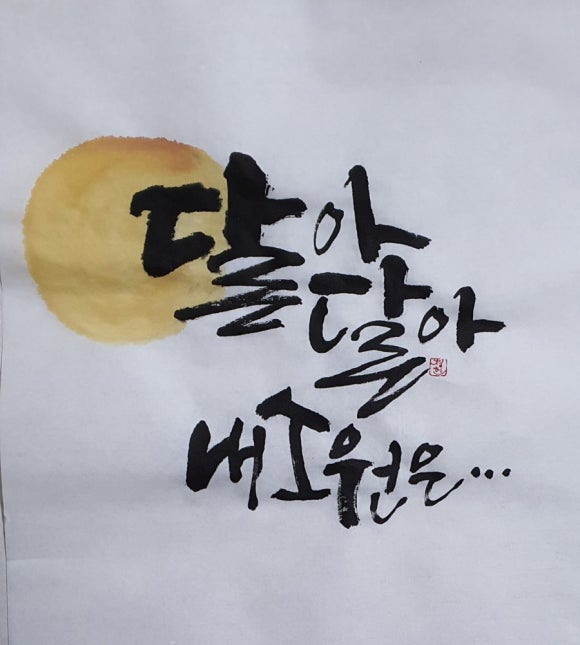 달아
달아
내 소원은...